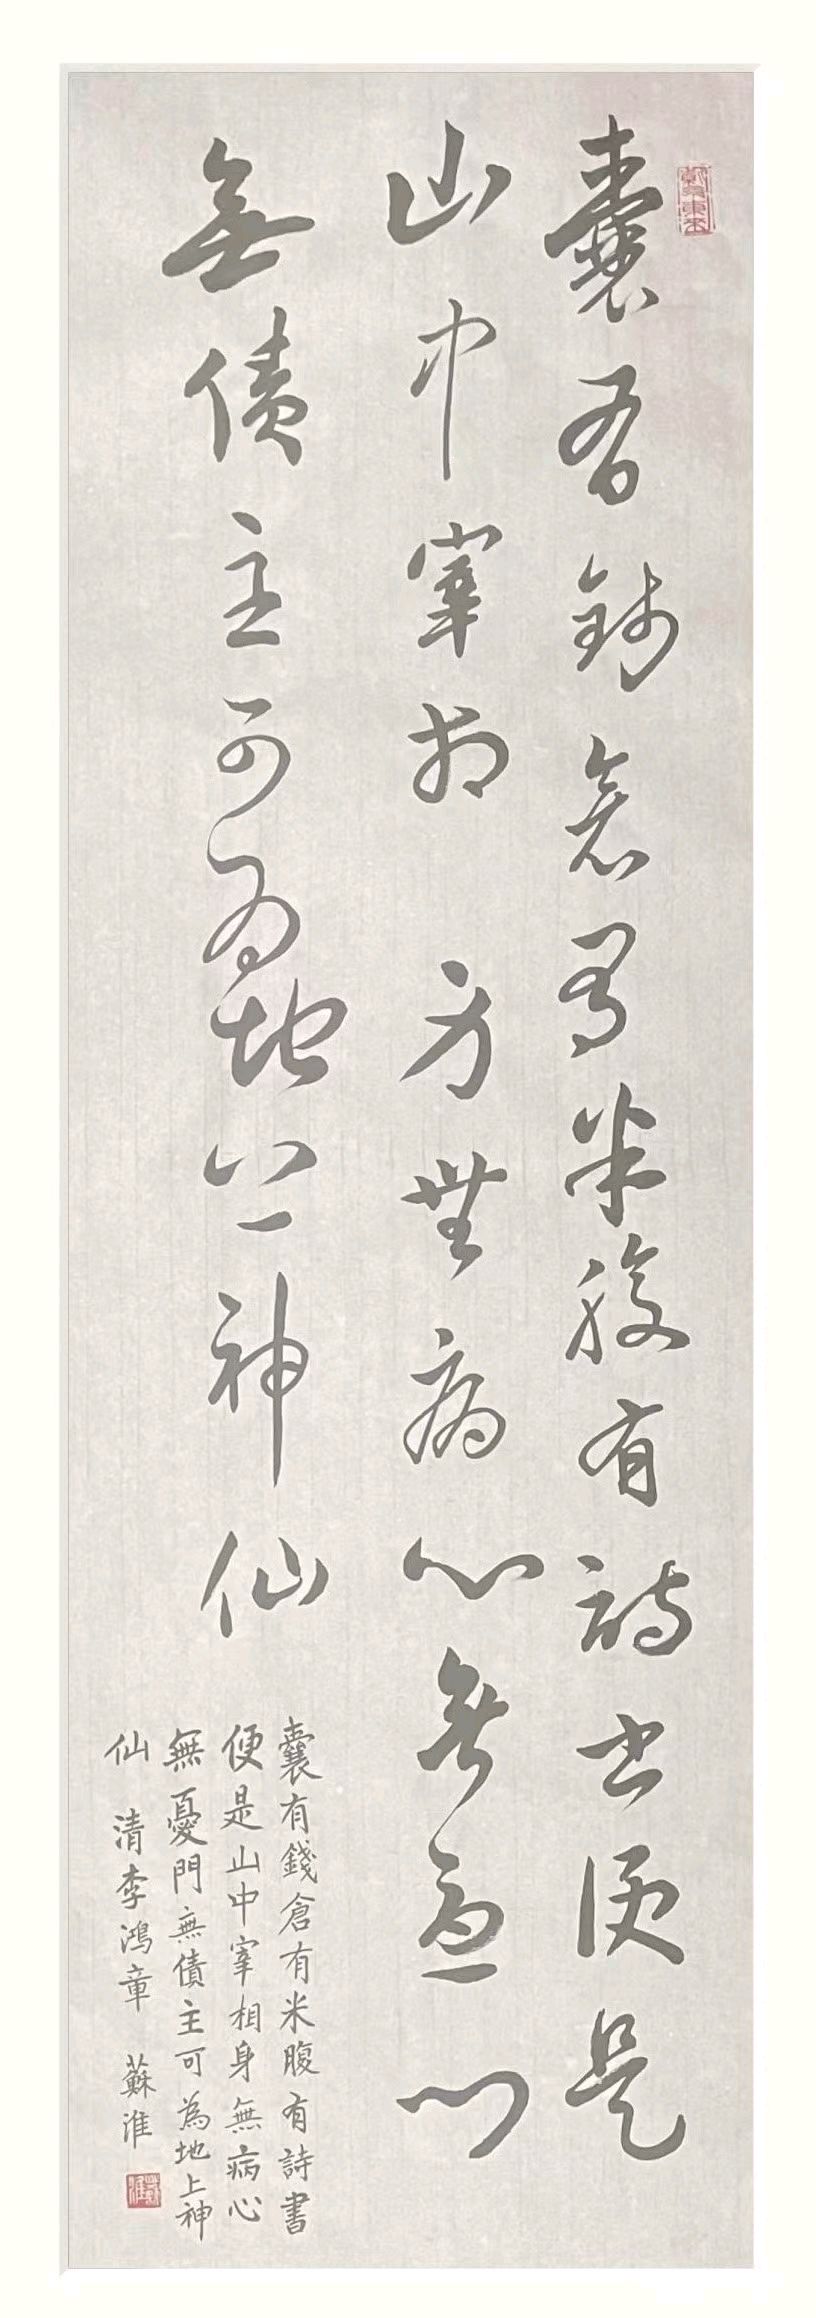 囊有錢倉有米腹有詩書便是
山中宰相身無病心無憂門
無債主可為地上神仙
囊有錢倉有米腹有詩書
便是山中宰相身無病心
無憂門無債主可為地上神
仙 清李鴻章 蘇淮
蘇淮